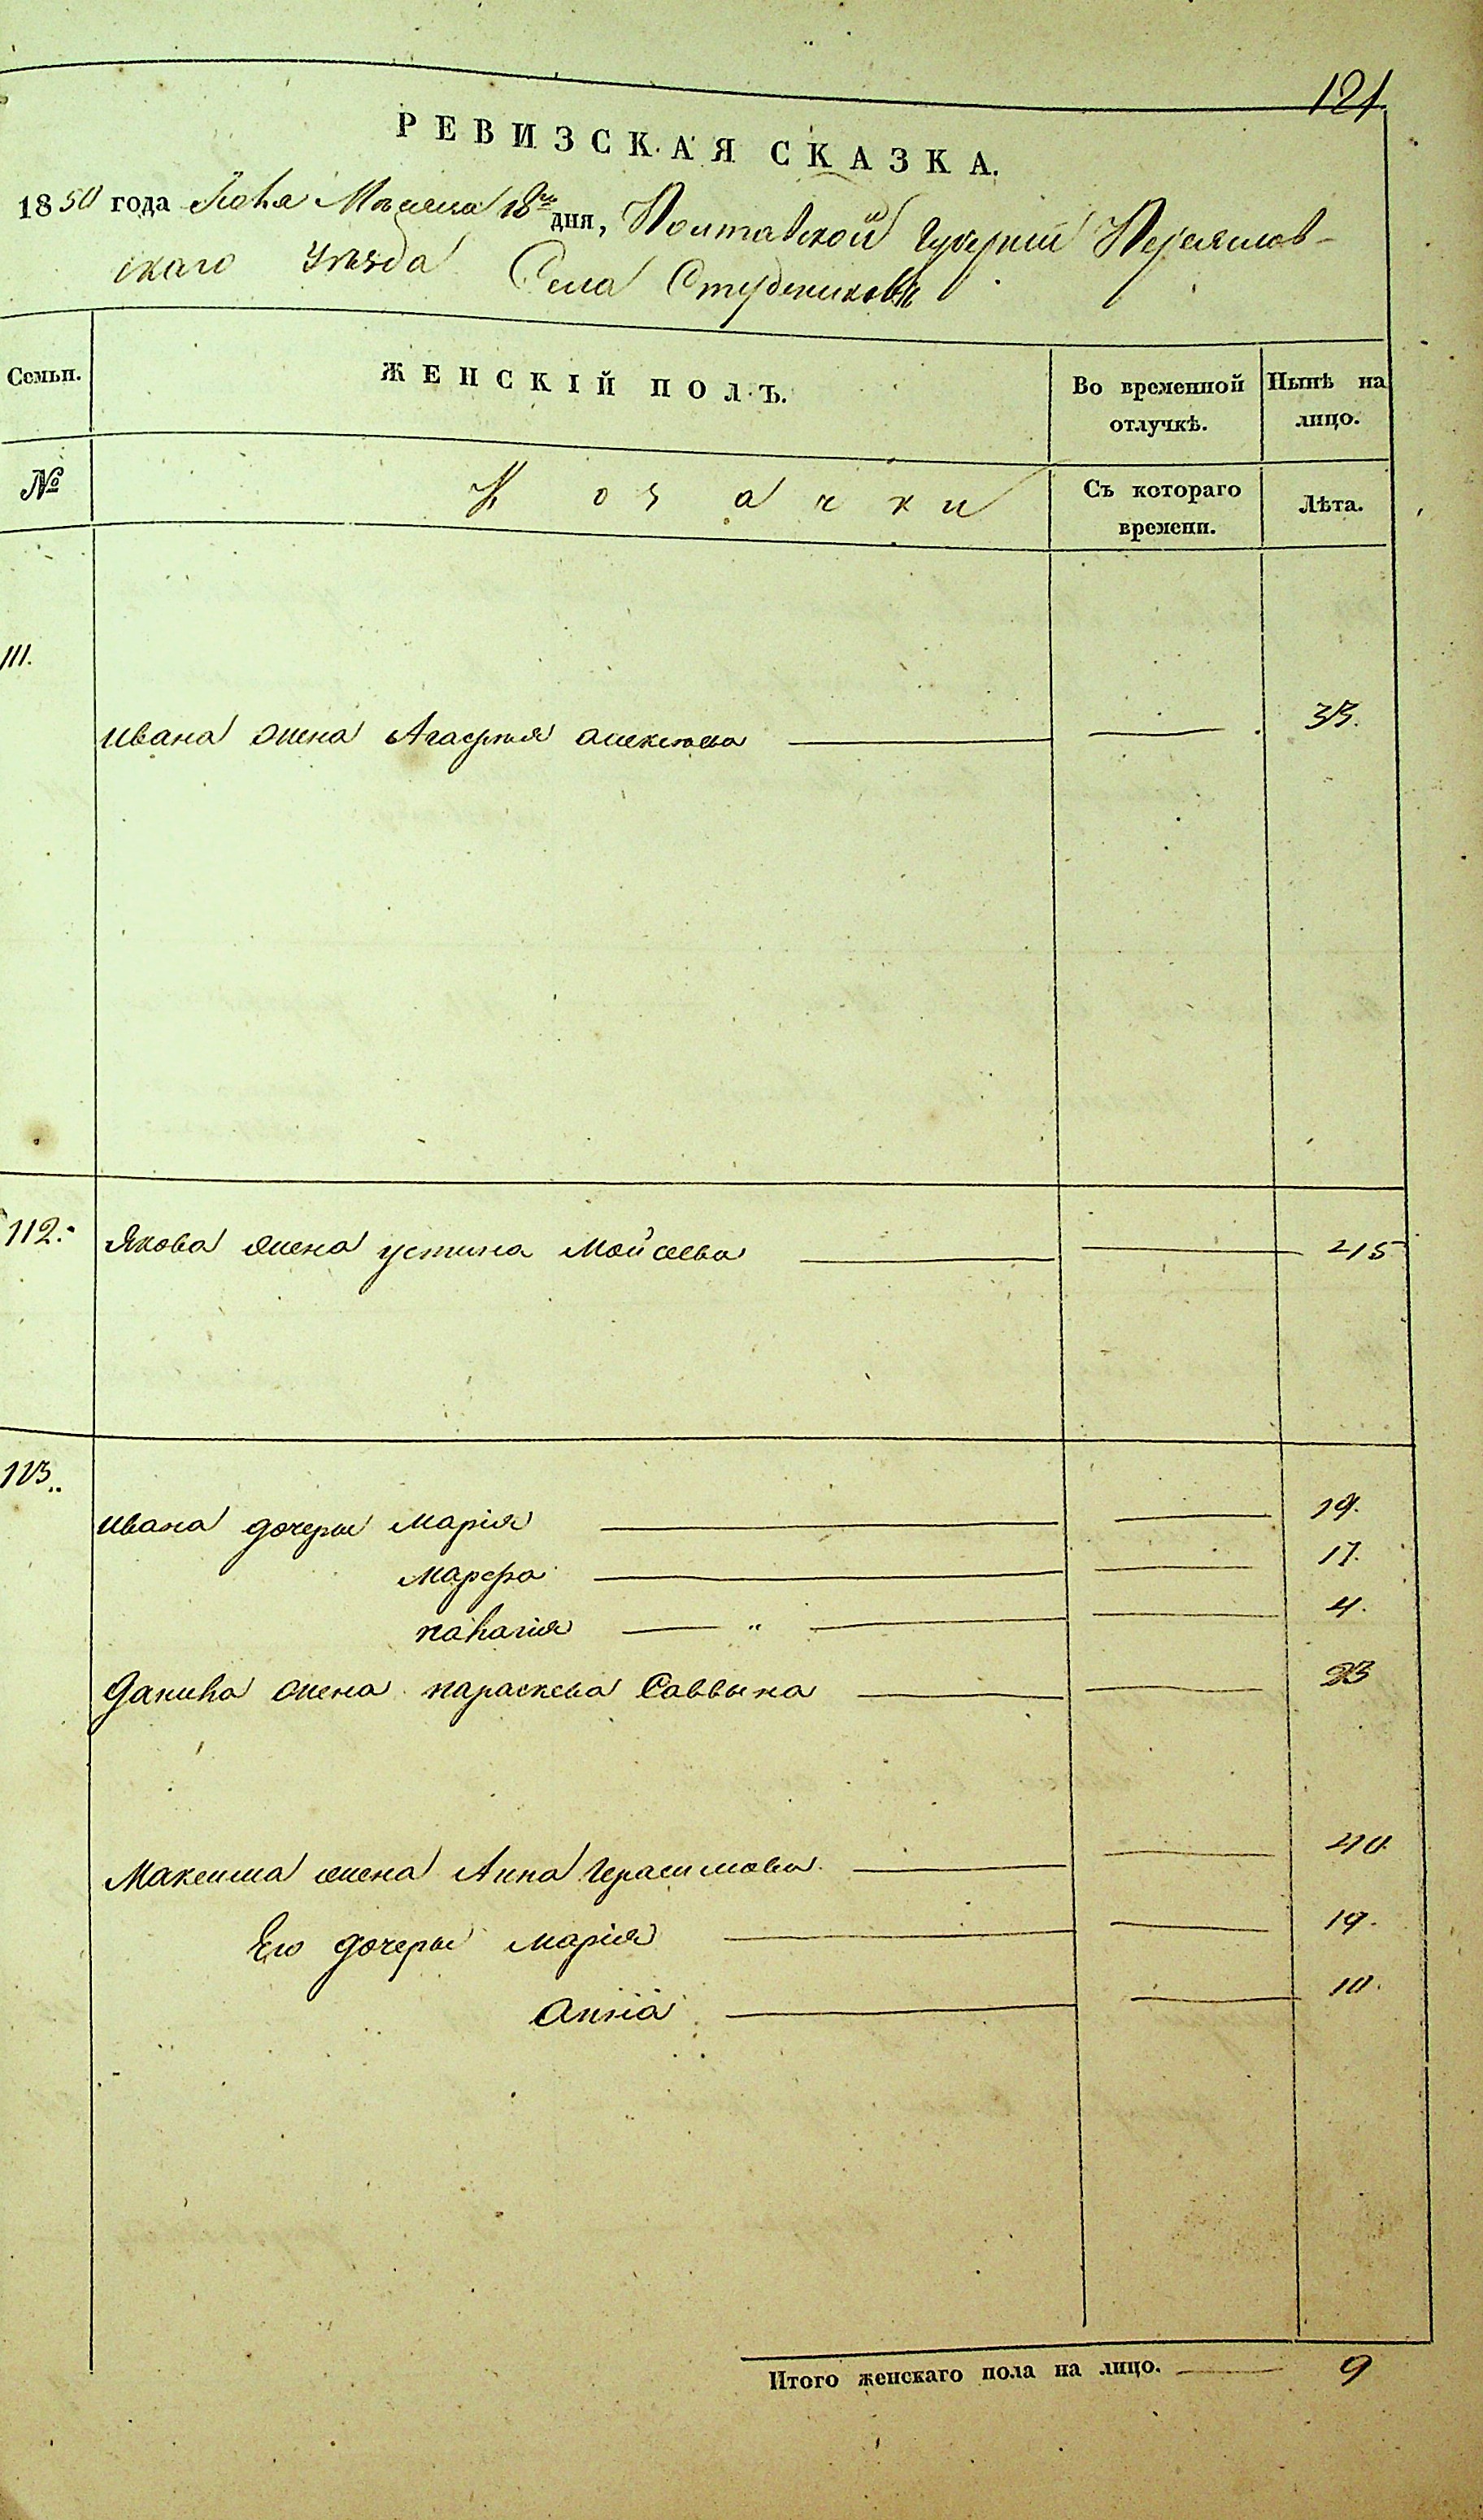 121
РЕВИЗСКАЯ СКАЗКА.
1850 года Июля Месяца 18го дня, Полтавской Губернии Переяслов-
скаго Уезда Села Студениковъ
Семьи.
ЖЕНСКІЙ ПОЛЪ.
Во временной отлучкѣ.
Нынѣ на лицо.
№
Козачки
Съ котораго времени.
Лѣта.
111.
Ивана жена Агафия Алексѣева 33.
112. Якова жена Устина Мойсеева 45
113.
Ивана дочеры Марія 19.
Марфа 17.
Палагія " 4.
Данила жена Параскева Саввына 23
Максима жена Анна Герасимова 40.
Его дочеры Марія 19.
Анна 10.
Итого женскаго пола на лицо. 9